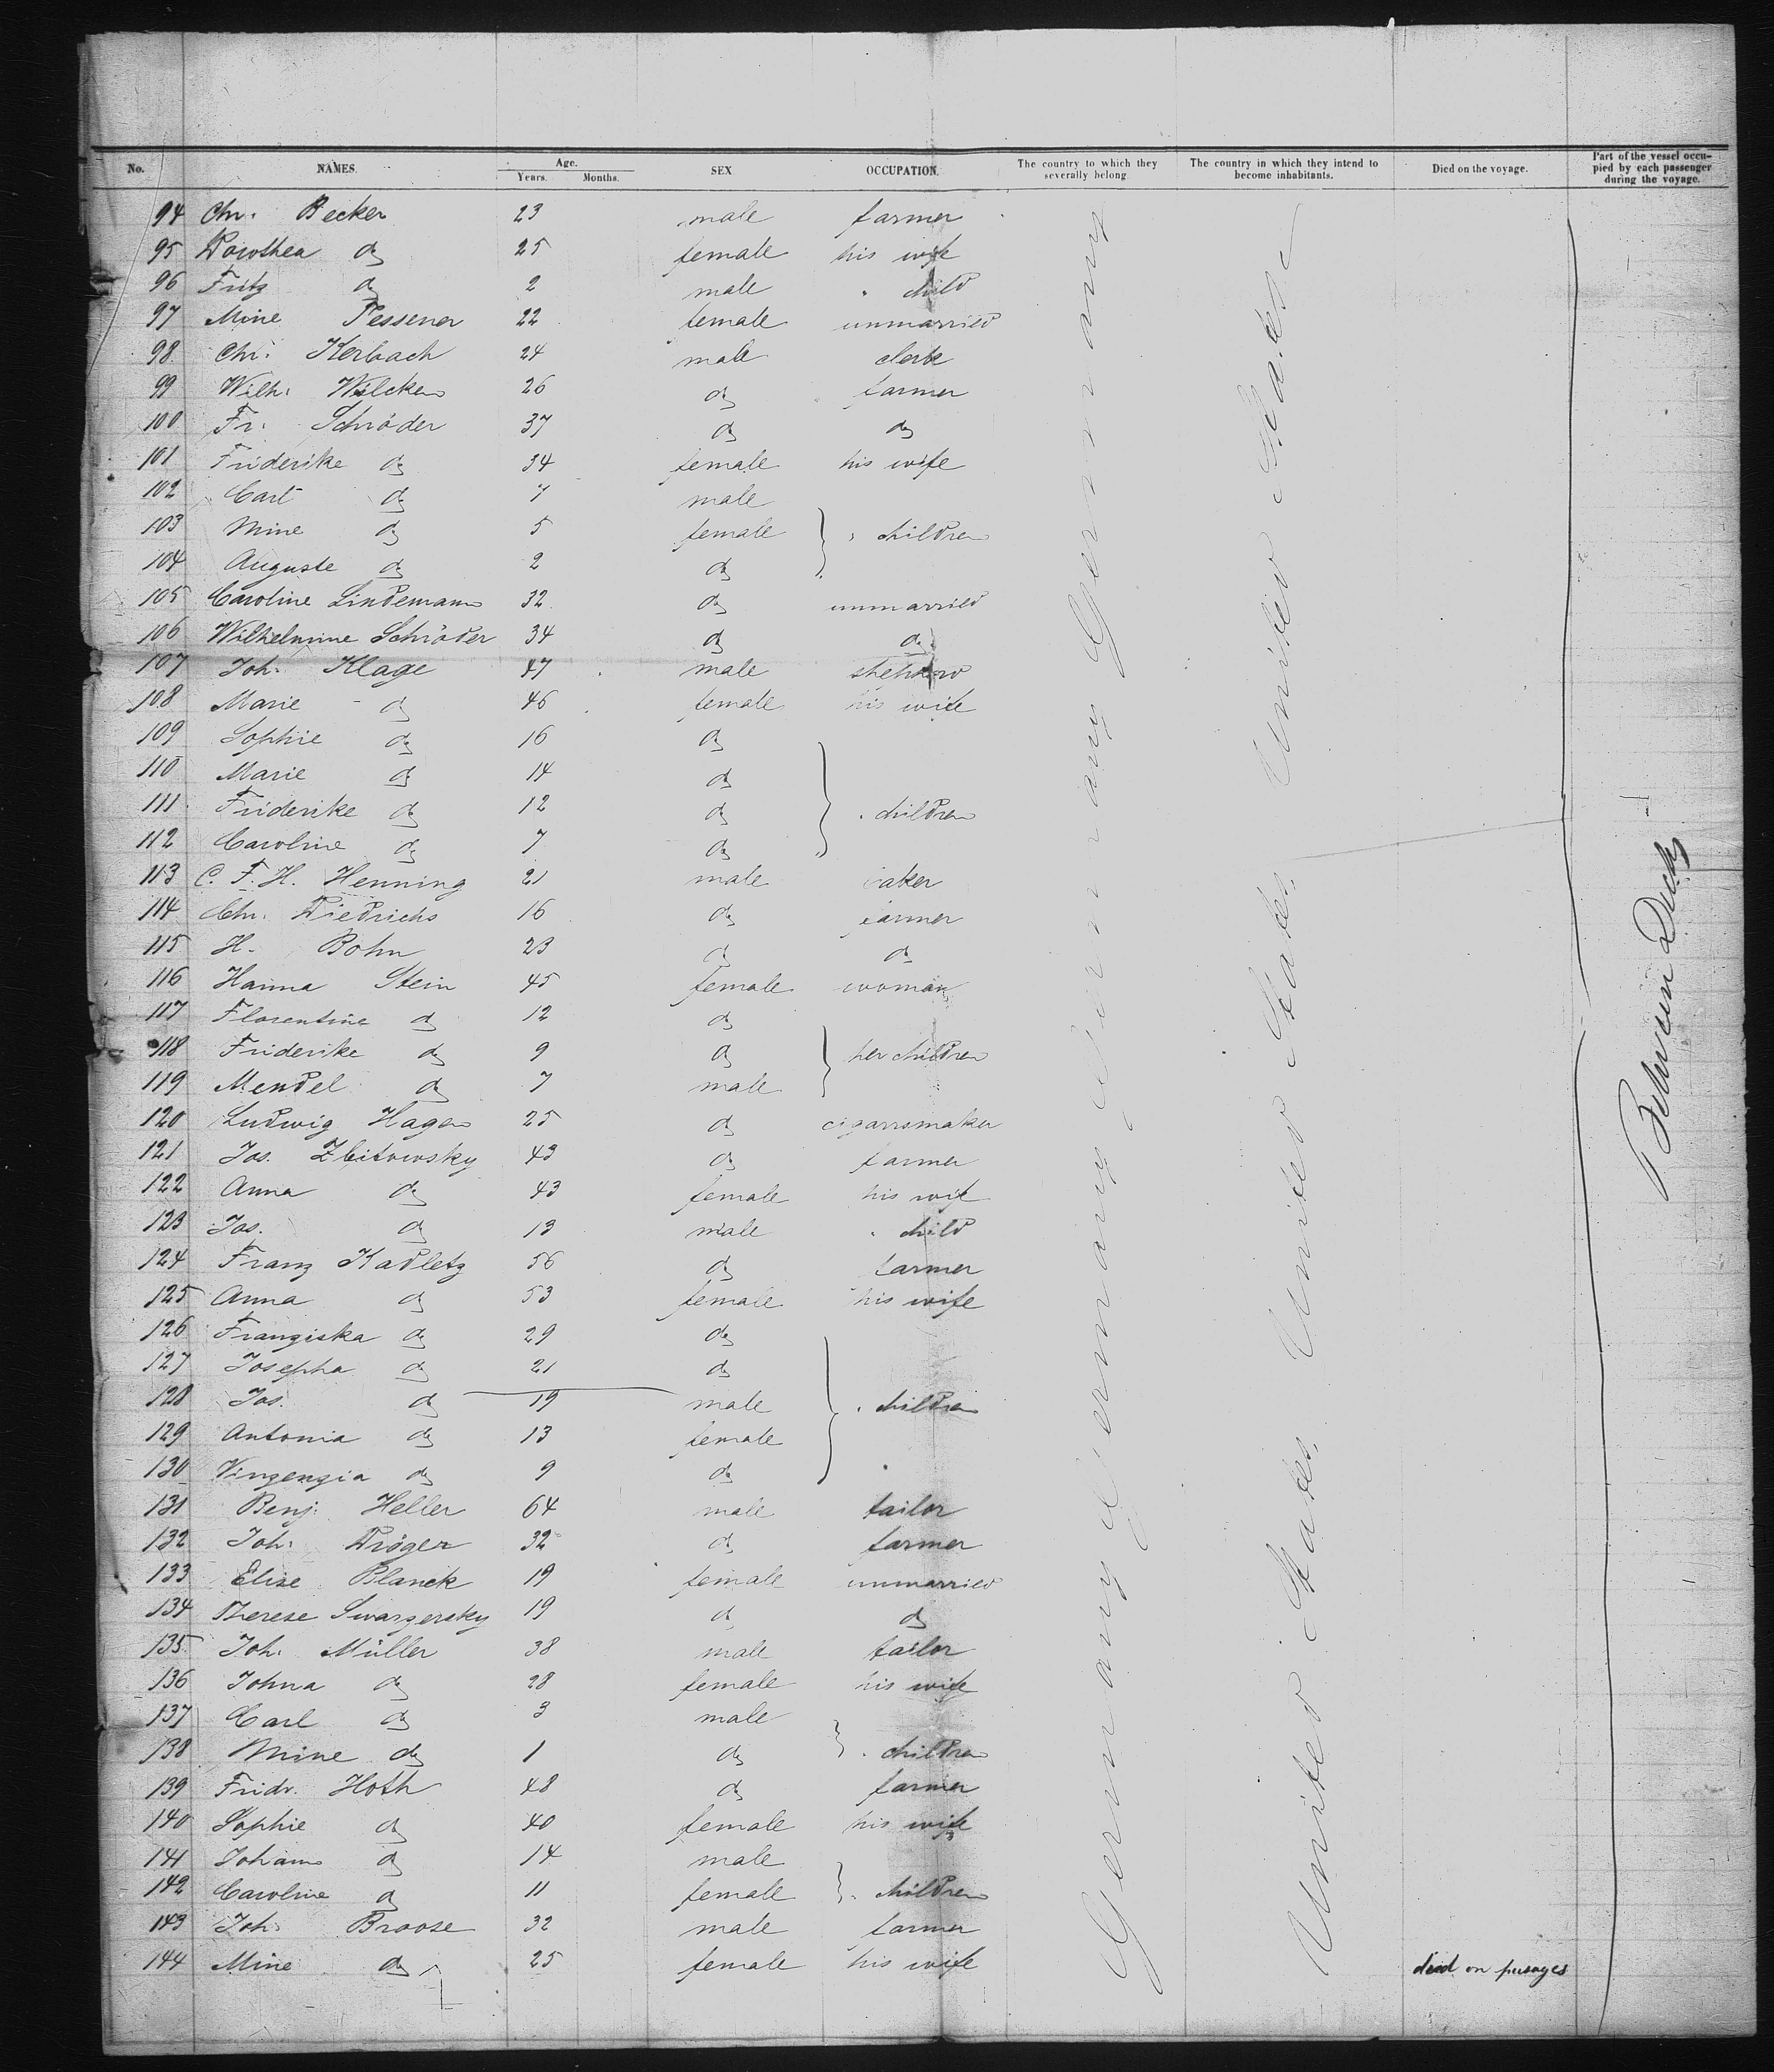 No. NAMES. Age. Years. Months. SEX OCCUPATION. The country to which they severally belong The country in which they intend to become inhabitants. Died on the voyage. Part of the vessel occupied by each passenger during the voyage.
94 Chr. Becker 23 male farmer
95 Dorothea do 25 female his wife
96 Fritz do 2 male " child
97 Mine Tessener 22 female unmarried
98 Chr. Kerbach 24 male clerk
99 Wilh. Wilcken 26 do farmer
100 Fr. Schröder 37 do do
101 Friderike do 34 female his wife
102 Carl do 7 male
103 Mine do 5 female " children
104 Auguste do 2 do
105 Caroline Lindemann 32 do unmarried
106 Wilhelmine Schröder 34 do do
107 Joh. Klage 47 male
108 Marie do 46 female his wife
109 Sophie do 16 do
110 Marie do 14 do
111 Friderike do 12 do " children
112 Caroline do 7 do
113 C. F. H. Henning 21 male baker
114 Chr. Diedrichs 16 do farmer
115 H. Bohn 23 do do
116 Hanna Stein 45 female woman
117 Florentine do 12 do
118 Friderike do 9 do her children
119 Mendel do 7 male
120 Ludwig Hagen 25 do cigarrsmaker
121 Jos. Zbitowsky 43 do farmer
122 Anna do 43 female his wife
123 Jos. do 13 male " child
124 Franz Kadletz 56 do farmer
125 Anna do 53 female his wife
126 Franziska do 29 do
127 Josepha do 21 do
128 Jos. do 19 male " children
129 Antonia do 13 female
130 Vinzenzia do 9 do
131 Benj. Heller 64 male tailor
132 Joh. Dröger 32 do farmer
133 Elise Planck 19 female unmarried
134 Therese Swarzersky 19 do do
135 Joh. Müller 38 male tailor
136 Johna do 28 female his wife
137 Carl do 3 male
138 Mine do 1 do " children
139 Fridr. Hoth 48 do farmer
140 Sophie do 40 female his wife
141 Johann do 14 male
142 Caroline do 11 female " children
143 Joh. Broose 32 male farmer
144 Mine do 25 female his wife died on pasages
Germany Germany Germany Germany
United States United States United States
Between Decks